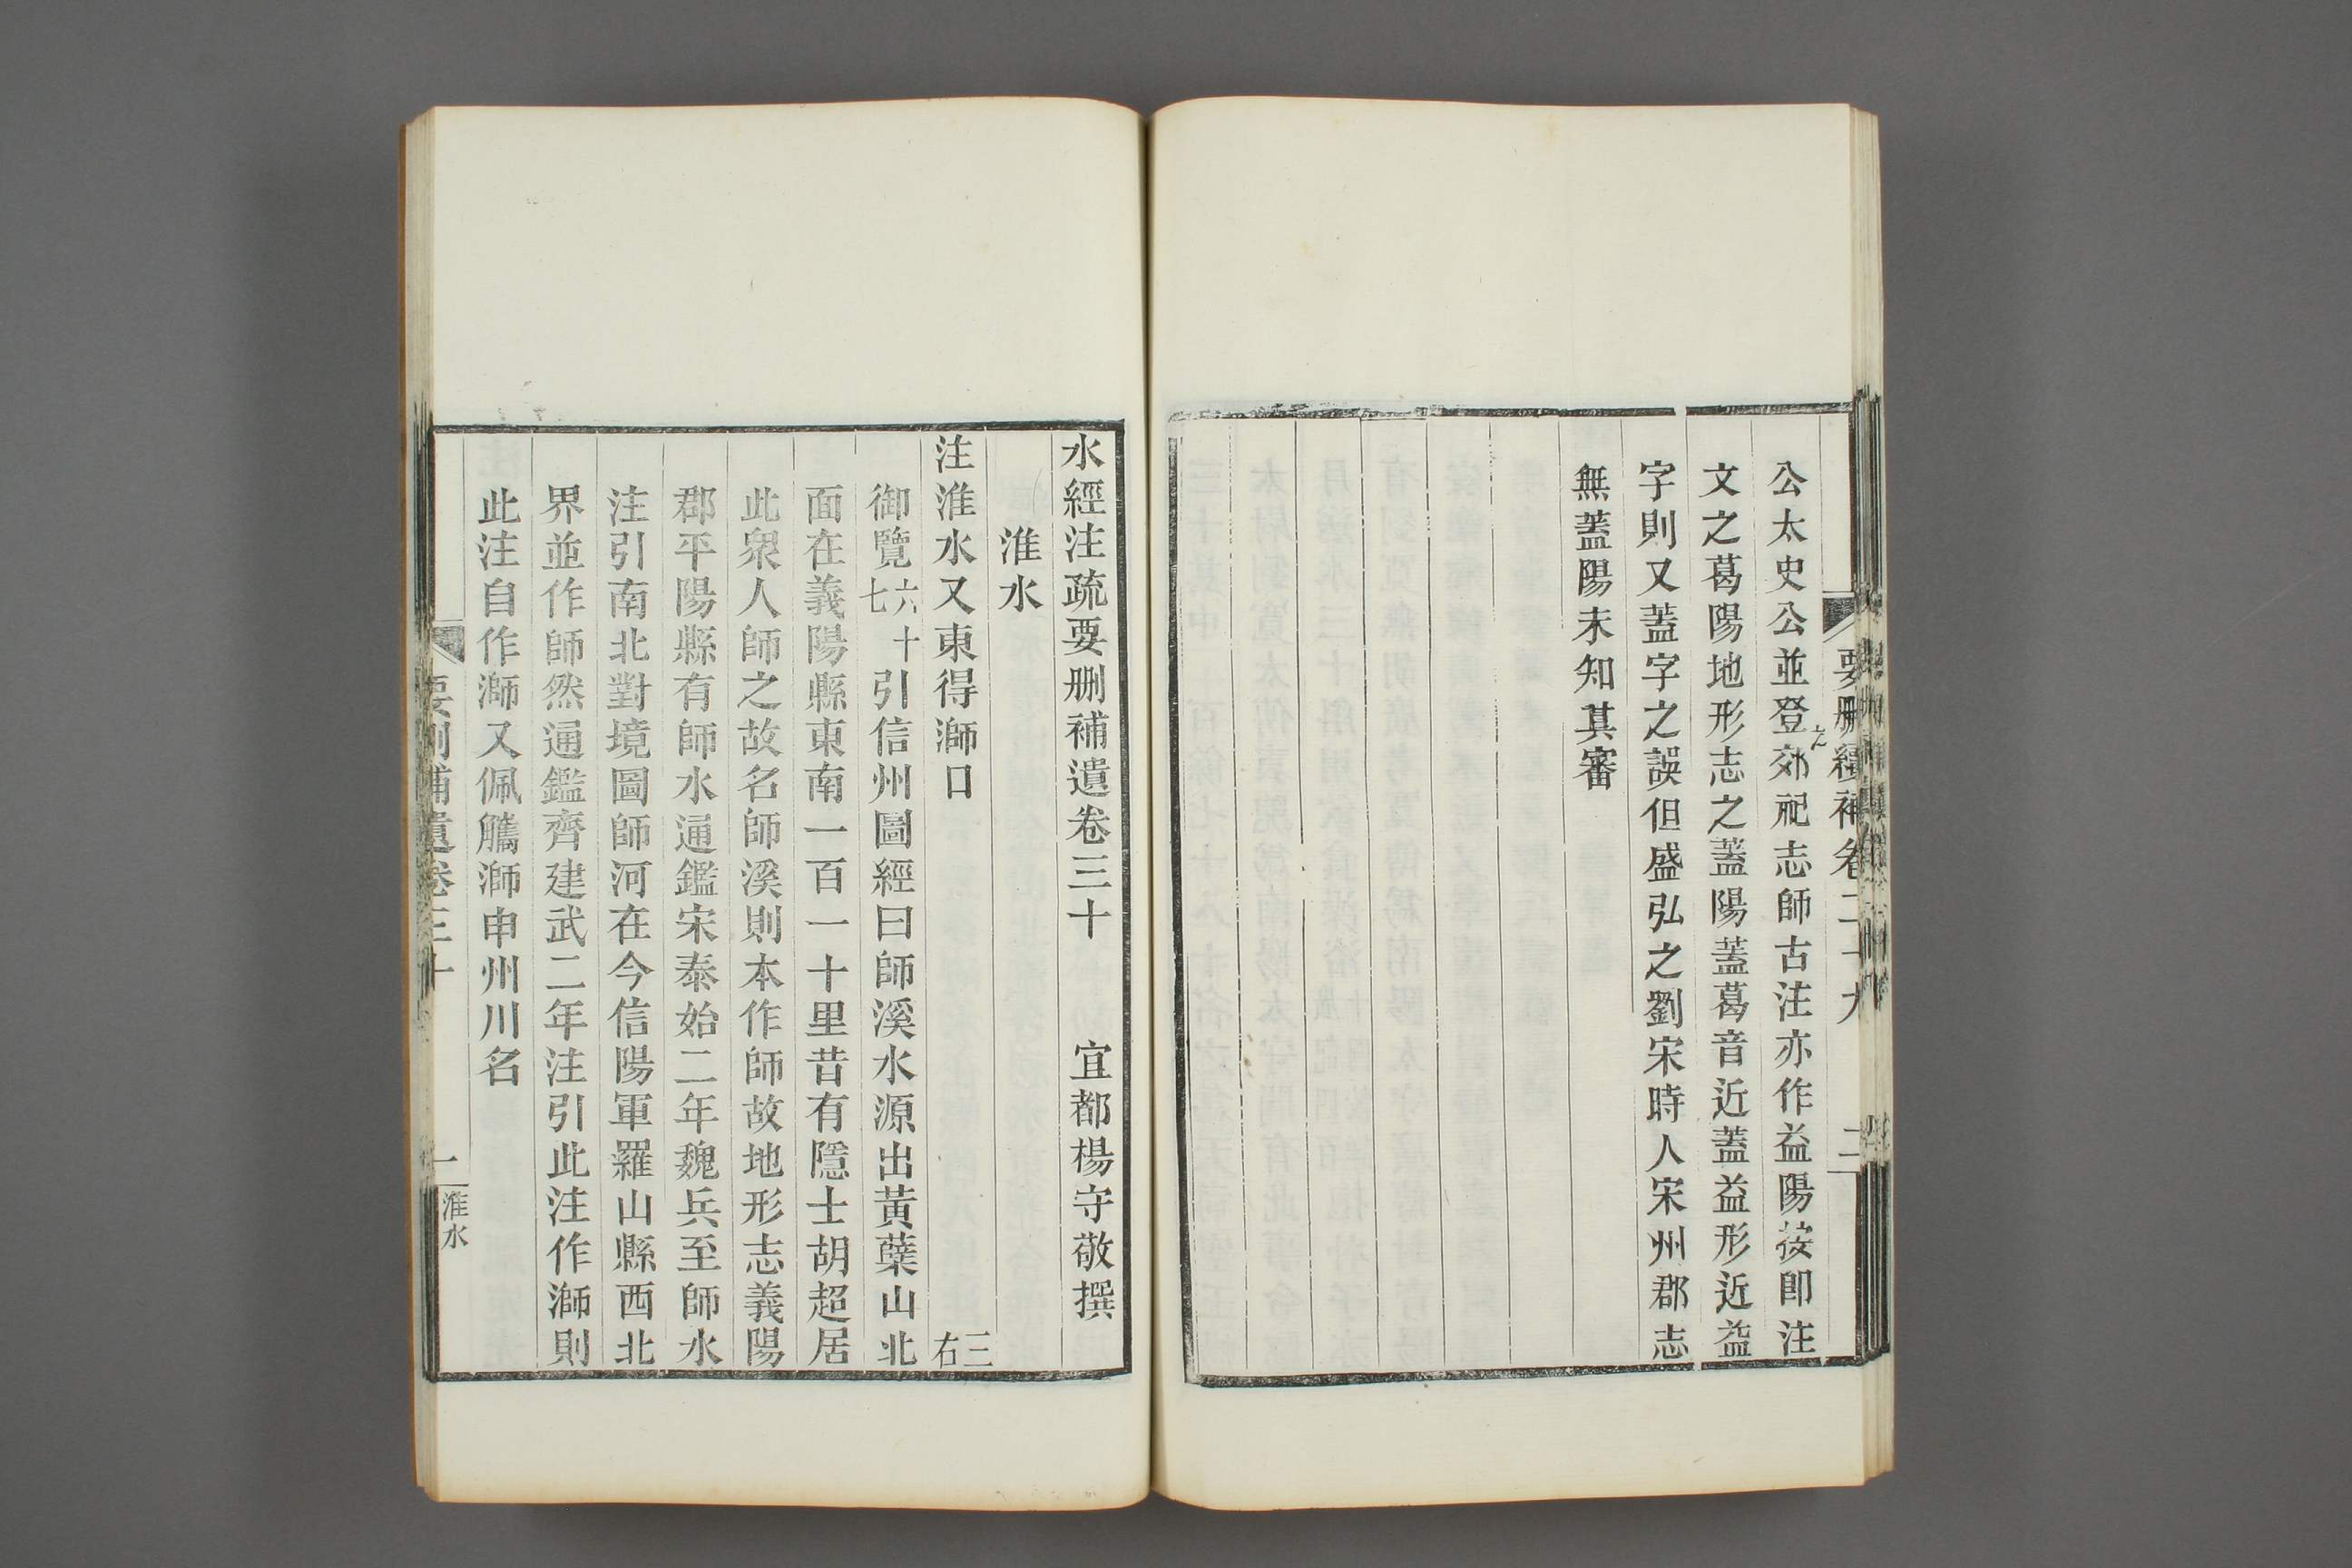 要刪續補卷二十九
二
公太史公並登郊祀志師古注亦作益陽按卽注
之
文之葛陽地形志之蓋陽蓋葛音近蓋益形近益
字則又蓋字之誤但盛弘之劉宋時人宋州郡志
無蓋陽未知其審
水經注疏要刪補遺卷三十　宜都楊守敬撰
淮水
注淮水又東得溮口　三右
御覽六十七引信州圖經曰師溪水源出黃蘗山北
面在義陽縣東南一百一十里昔有隱士胡超居
此衆人師之故名師溪則本作師故地形志義陽
郡平陽縣有師水通鑑宋泰始二年魏兵至師水
注引南北對境圖師河在今信陽軍羅山縣西北
界並作師然通鑑齊建武二年注引此注作溮則
此注自作溮又佩觿溮申州川名
要刪補遺卷三十
一
淮水